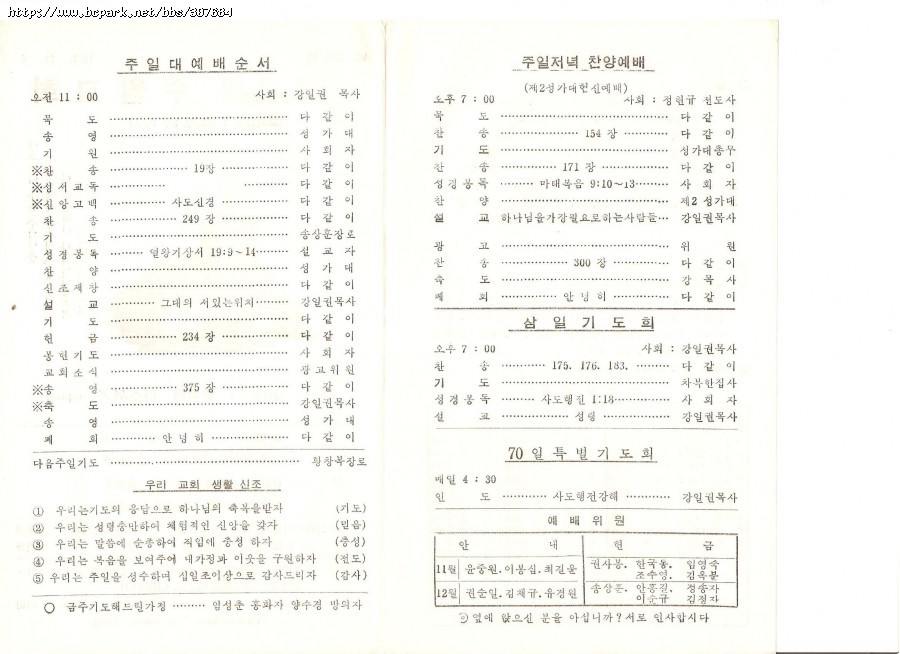 https://www.bcpark.net/bbs/387684
주일대예배순서
오전 11 : 00 사회 : 강일권 목사
묵 도 다 같 이
송 영 성 가 대
기 원 사 회 자
※찬 송 19장 다 같 이
※성서교독 다 같 이
※신앙고백 사도신경 다 같 이
찬 송 249 장 다 같 이
기 도 송상훈장로
성경봉독 열왕기상서 19:9~14 설 교 자
찬 양 성 가 대
신조제창 다 같 이
설 교 그대의 서있는위치 강일권목사
기 도 다 같 이
헌 금 234 장 다 같 이
봉헌기도 사 회 자
교회소식 광고위원
※송 영 375 장 다 같 이
※축 도 강일권목사
송 영 성 가 대
폐 회 안 녕 히 다 같 이
다음주일기도 황창복장로
우리 교회 생활 신조
① 우리는기도의 응답으로 하나님의 축복을받자 (기도)
② 우리는 성령충만하여 체험적인 신앙을 갖자 (믿음)
③ 우리는 말씀에 순종하여 직임에 충성 하자 (충성)
④ 우리는 복음을 보여주어 내가정과 이웃을 구원하자 (전도)
⑤ 우리는 주일을 성수하며 십일조이상으로 감사드리자 (감사)
○ 금주기도해드릴가정 임성춘 홍화자 양수경 방의자
주일저녁 찬양예배
(제2성가대헌신예배)
오후 7 : 00 사회 : 정현규 전도사
묵 도 다 같 이
찬 송 154 장 다 같 이
기 도 성가대총무
찬 송 171 장 다 같 이
성경봉독 마태복음 9:10~13 사 회 자
찬 양 제2 성가대
설 교 하나님을가장필요로하는사람들 강일권목사
광 고 위 원
찬 송 300 장 다 같 이
축 도 강 목 사
폐 회 안 녕 히 다 같 이
삼 일 기 도 회
오후 7 : 00 사회 : 강일권목사
찬 송 175. 176. 183. 다 같 이
기 도 차부한집사
성경봉독 사도행전 1:18 사 회 자
설 교 성령 강일권목사
70 일 특 별 기 도 회
매일 4 : 30
인 도 사도행전강해 강일권목사
예 배 위 원
안 내 헌 금
11월 윤중원. 이봉섭. 최길윤 권사봉. 한국동. 임영숙
조수영. 김옥분
12월 권순일. 김채규. 유경원 송상훈. 안홍길. 정송자
이순규 김정자
옆에 앉으신 분을 아십니까? 서로 인사합시다